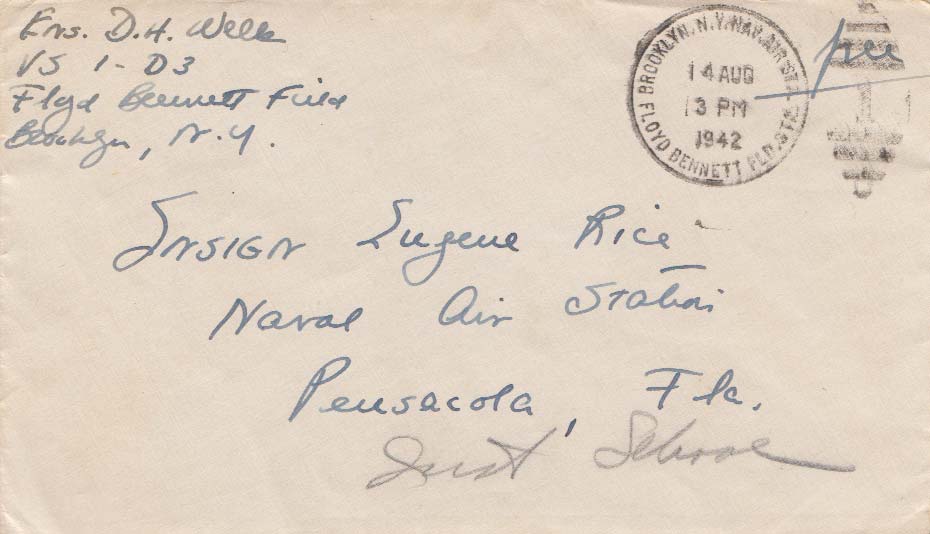 Ens. D.H. Wells
VS 1-D3
Floyd Bennett Field
Brooklyn, N.Y.
BROOKLYN, N.Y. NAV. AIR STA.
14 AUG
3 PM
1942
FLOYD BENNETT FLD. STA.
free
Ensign Eugene Rice
Naval Air Station
Pensacola, Fla.
Inst School